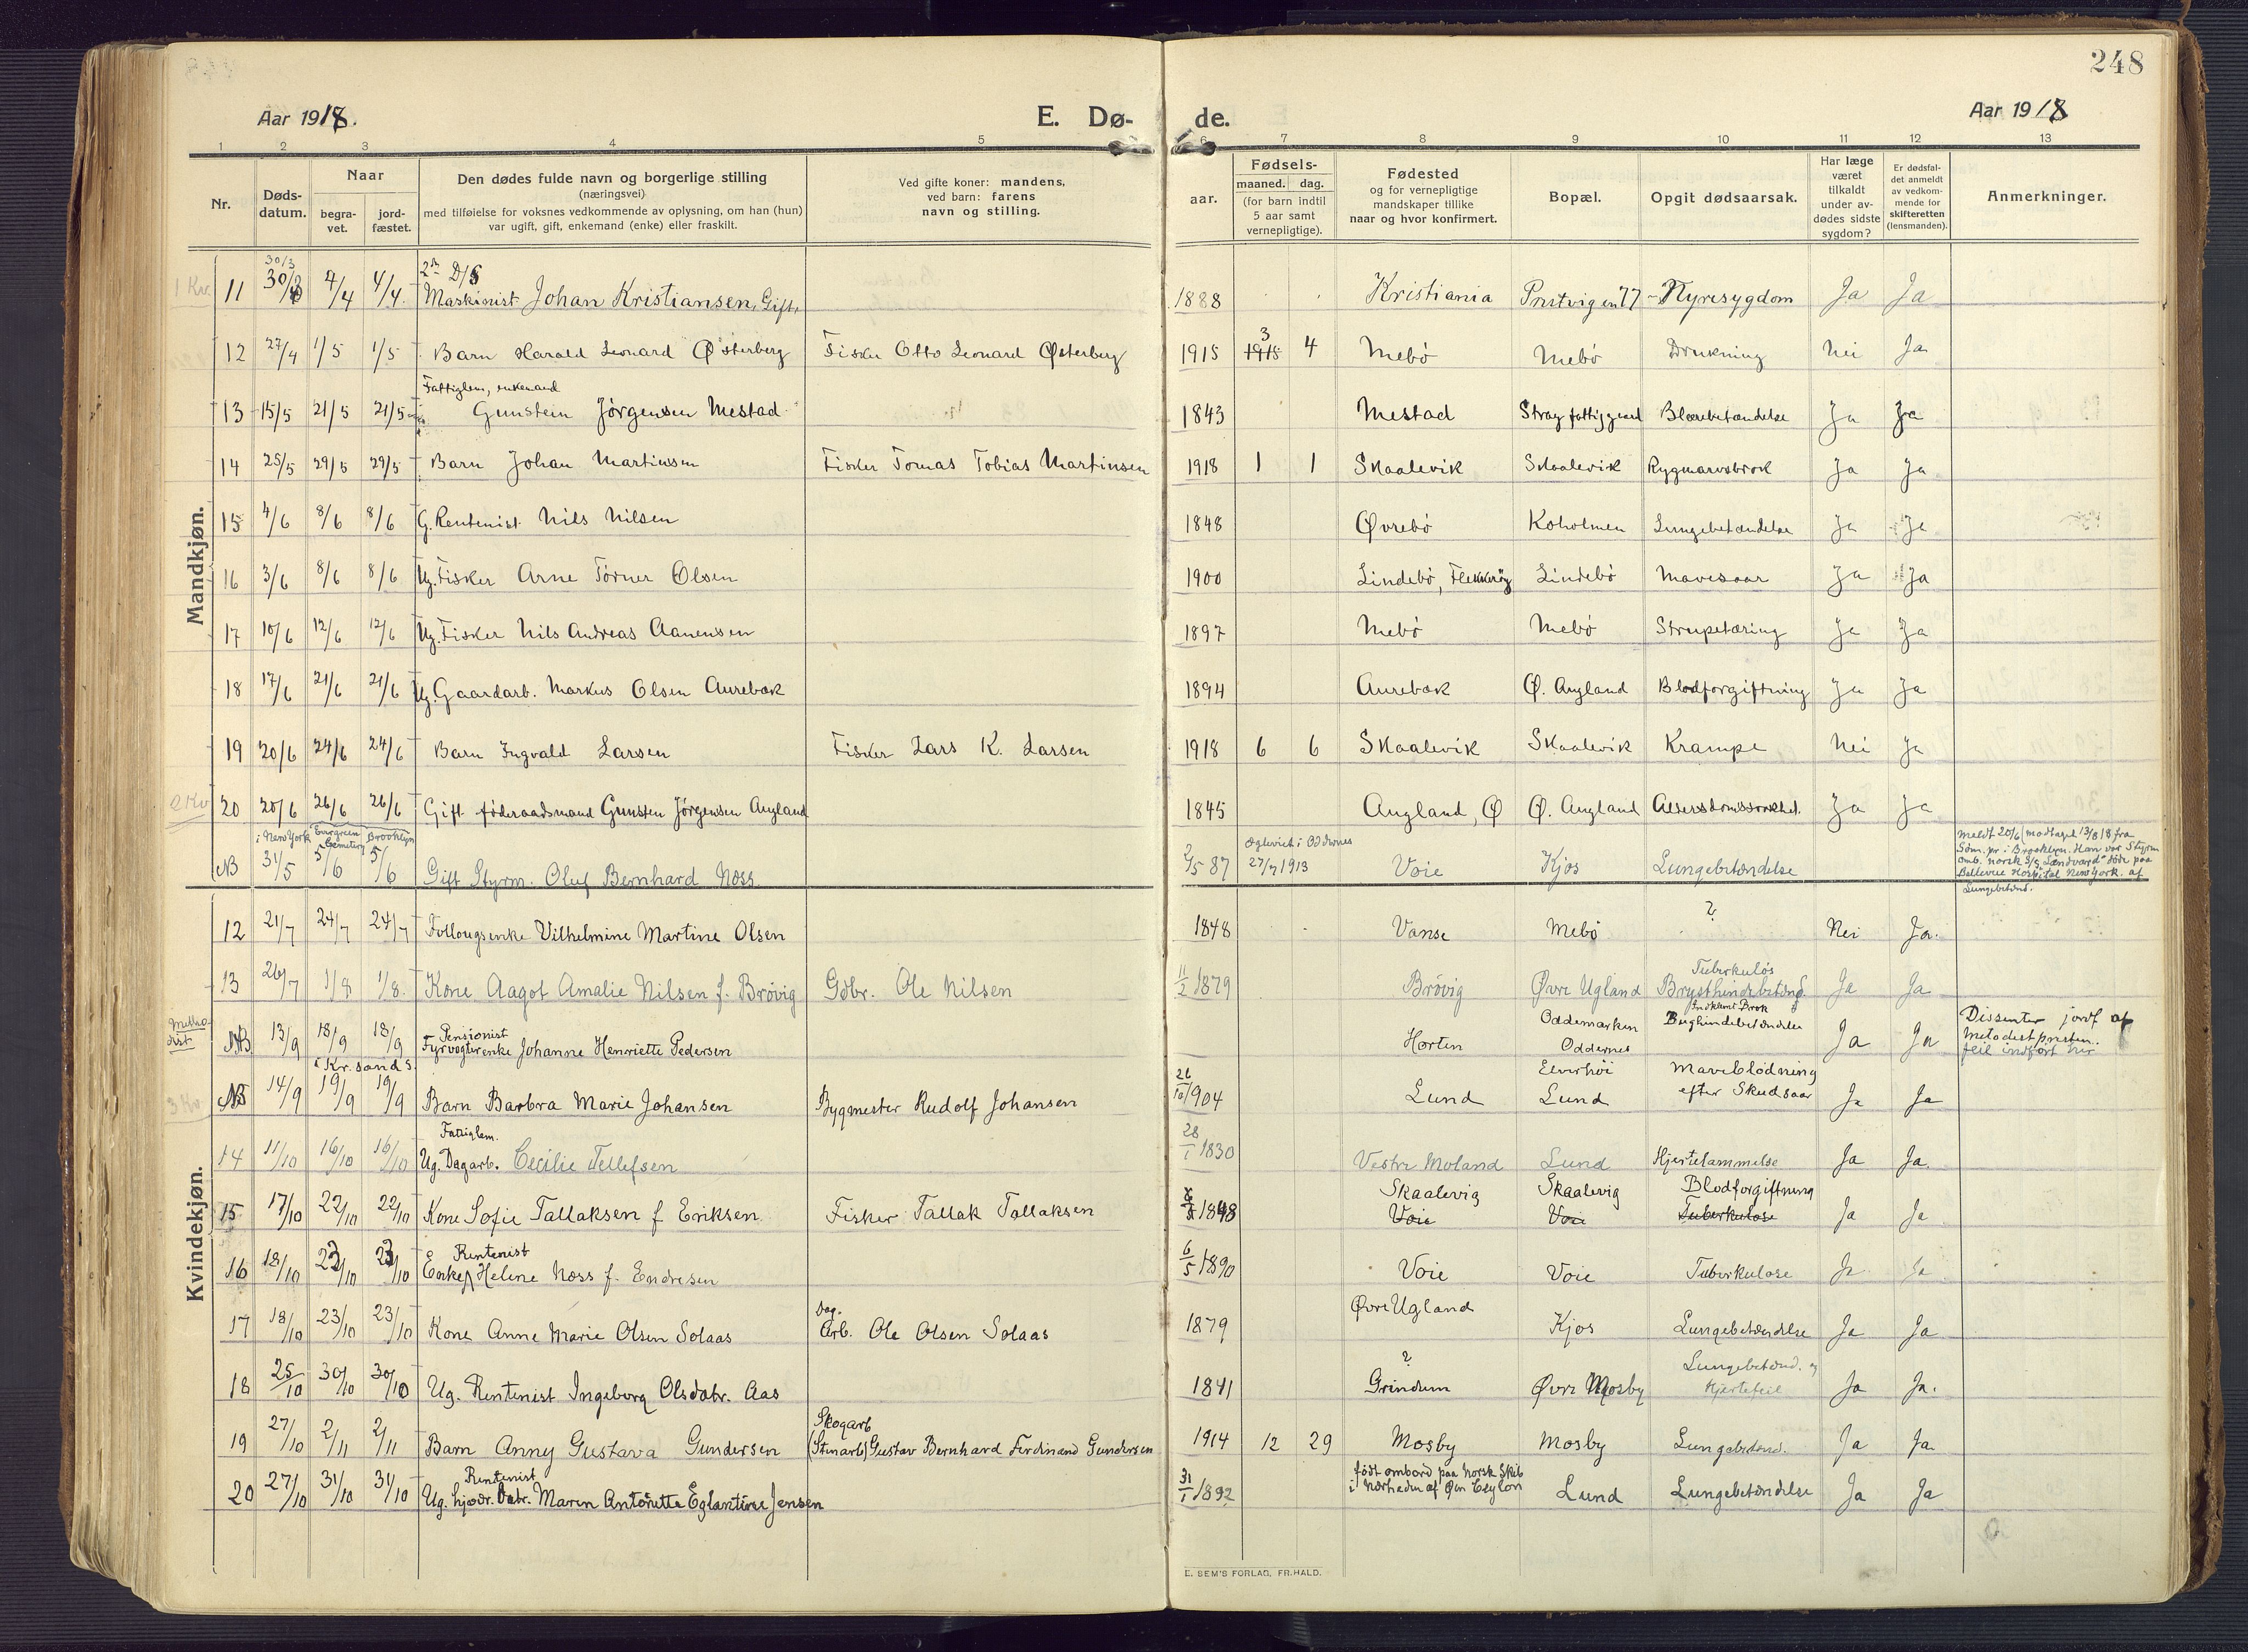 248
Aar 1918.
E. Dø-
de.
Aar 1918
1 2 3 4 5 6 7 8 9 10 11 12 13
Nr.
Døds-
datum.
Naar
begra-
vet.
jord-
fæstet.
Den dødes fulde navn og borgerlige stilling
(næringsvei)
med tilføielse for voksnes vedkommende av oplysning, om han (hun)
var ugift, gift, enkemand (enke) eller fraskilt.
Ved gifte koner: mandens,
ved barn: farens
navn og stilling.
Fødsels-
aar.
maaned. dag.
(for barn indtil
5 aar samt
vernepligtige).
Fødested
og for vernepligtige
mandskaper tillike
naar og hvor konfirmert.
Bopæl.
Opgit dødsaarsak.
Har læge
været
tilkaldt
under av-
dødes sidste
sygdom?
Er dødsfal-
det anmeldt
av vedkom-
mende for
skifteretten
(lensmanden).
Anmerkninger.
Mandkjøn.
30/3
2n D/S
1 Kv. 11 4/4 4/4. Maskinist Johan Kristiansen, Gift, 1888 Kristiania 77 Nyresygdom Ja Ja
3
12 27/4 1/5 1/5 Barn Harald Leonard Østerberg Fisker Otto Leonard Østerberg 1915 1915 4 Mebö Mebö Drukning Nei Ja
Fattiglem, enkemand
13 15/5 21/5 21/5 Gunstein Jörgensen Mestad 1843 Mestad Stray fattiggaard Blærebetændelse Ja Ja
14 25/5 29/5 29/5 Barn Johan Martinsen Fisker Tomas Tobias Martinsen 1918 1 1 Skaalevik Skaalevik Rygmarvsbrok Ja Ja
15 4/6 8/6 8/6 G. Rentenist Nils Nilsen 1848 Øvrebö Koholmen Lungebetændelse Ja Ja
16 3/6 8/6 8/6 Ug. Fisker Arne Törner Olsen 1900 Lindebö, Flekkeröy Lindebö Mavesaar Ja Ja
17 10/6 12/6 12/6 Ug. Fisker Nils Andreas Aanensen 1897 Mebö Mebö Strupetæring Ja Ja
18 17/6 21/6 21/6 Ug. Gaardarb. Markus Olsen Aurebæk 1894 Aurebæk Ø. Augland Blodforgiftning Ja Ja
19 20/6 24/6 24/6 Barn Ingvald Larsen Fisker Lars K. Larsen 1918 6 6 Skaalevik Skaalevik Krampe Nei Ja
2 Kv 20 20/6 26/6 26/6 Gift föderaadsmand Gunsten Jörgensen Augland 1845 Augland, Ø Ø. Augland Alderdomssvakhet. Ja Ja
i New York Evergreen Cemetery Brooklyn
NB 31/5 5/6 5/6 Gift Styrm. Oluf Bernhard Næss 2/5 87 Ægteviet i Oddernes 27/7 1913 Voie Kjos Lungebetændelse
Meldt 20/6 modtaget 13/8 18 fra
Söm. pr i Brooklyn. Han var Styrm
omb. norsk S/S "Landvard" döde paa
Bellevue Hospital New York. af
Lungebetænd.
Kvindekjøn.
12 21/7 24/7 24/7 Follougsenke Vilhelmine Martine Olsen 1848 Vanse Mebö ? Nei Ja.
13 26/7 1/8 1/8. Kone Aagot Amalie Nilsen f. Brövig Gdbr. Ole Nilsen 11/2 1879 Brövig Øvre Ugland Tuberkulös Brysthindebetænd. Ja Ja
Metho-
dist.
NB 13/9 18/9 18/9 Pensionist Fyrvogterenke Johanne Henriette Pedersen Horten Oddemarken Oddernes Indklemt Brok Bughindebetændelse Ja Ja
Dissenter jordf af
Metodistpresten.
feil indfört her
i Kr. sand S.
3 Kv. NB 14/9 19/9 19/9 Barn Barbra Marie Johansen Bygmester Rudolf Johansen 26/10 1904 Lund Elverhöi Lund Maveblödning efter Skudsaar Ja Ja
Fattiglem.
14 11/10 16/10 16/10 Ug. Dagarb. Cecilie Tellefsen 28/1 1830 Vestre Moland Lund Hjertelammelse Ja Ja.
15 17/10 22/10 22/10 Kone Sofie Tallaksen f Eriksen Fisker Tallak Tallaksen 1848 Skaalevig Voie Skaalevig Voie Blodforgiftning Tuberkulose Ja Ja
Rentenist
16 18/10 23/10 23/10 Enke Helene Næss f. Endresen 6/5 1890 Voie Voie Tuberkulose Ja Ja
17 18/10 23/10 23/10 Kone Anne Marie Olsen Solaas Dag. arb. Ole Olsen Solaas 1879 Øvre Ugland Kjos Lungebetændelse Ja Ja
18 25/10 30/10 30/10 Ug. Rentenist Ingeborg Olsdatr. Aas 1841 ? Grindum Øvre Mosby Lungebetænd. og Hjertefeil Ja Ja.
19 27/10 2/11 2/11 Barn Anny Gustava Gundersen Skogarb (Stenarb) Gustav Bernhard Ferdinand Gundersen 1914 12 29 Mosby Mosby Lungebetænd. Ja Ja
Rentenist
20 27/10 31/10 31/10 Ug. Datr. Maren Antonette Eglantine Jensen 31/1 1892 født ombord paa Norsk Skib i Nærheden af Øen Ceylon Lund Lungebetændelse Ja Ja
E. SEM'S FORLAG, FR.HALD.